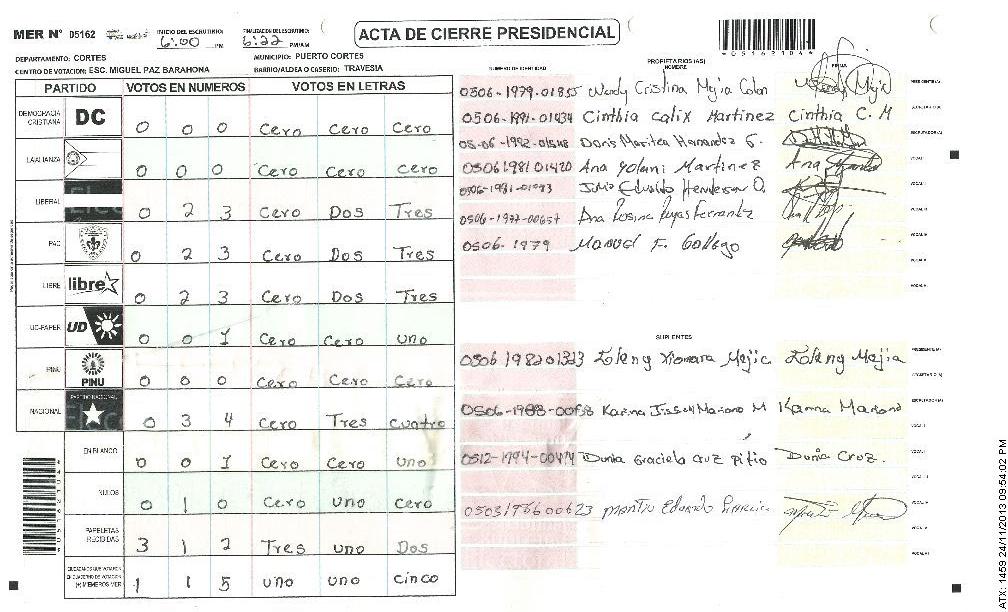 MER N° 05162
INICIO DEL ESCRUTINIO: 6:00 PM
FINALIZACION DEL ESCRUTINIO: 6:22 PM/AM
ACTA DE CIERRE PRESIDENCIAL
DEPARTAMENTO: CORTES
MUNICIPIO: PUERTO CORTES
CENTRO DE VOTACION: ESC. MIGUEL PAZ BARAHONA
BARRIO/ALDEA O CASERIO: TRAVESIA
PARTIDO VOTOS EN NUMEROS VOTOS EN LETRAS
DEMOCRACIA CRISTIANA DC 0 0 0 Cero Cero Cero
LA ALIANZA 0 0 0 Cero Cero cero
LIBERAL 0 2 3 Cero Dos Tres
PAC 0 2 3 Cero Dos Tres
LIBRE libre 0 2 3 Cero Dos Tres
UD-FAPER UD 0 0 1 Cero Cero uno
PINU PINU 0 0 0 Cero Cero Cero
NACIONAL PARTIDO NACIONAL 0 3 4 Cero Tres cuatro
EN BLANCO 0 0 1 Cero Cero uno
NULOS 0 1 0 Cero uno cero
PAPELETAS RECIBIDAS 3 1 2 Tres uno Dos
CIUDADANOS QUE VOTARON EN CUADERNO DE VOTACION (+) MIEMBROS MER 1 1 5 uno uno cinco
NUMERO DE IDENTIDAD PROPIETARIOS (AS) NOMBRE FIRMA
0506-1979-01855 Wendy Cristina Mejia Colon Wendy Mejia PRESIDENTE(A)
SECRETARIO(A)
0506-1991-01434 Cinthia Calix Martinez Cinthia C. M
ESCRUTADOR(A)
05-06-1992-01548 Doris Maritza Hernandez G.
VOCAL I
0506 1981 01420 Ana Yolani Martinez Ana
VOCAL II
0506-1981-01093 Julio Henderson O.
VOCAL III
0506-1977-00657 Ana Rosina Reyes Fernandez
VOCAL IV
0506-1979 Manuel F. Gallego
VOCAL V
VOCAL VI
SUPLENTES
PRESIDENTE(A)
0506 1982 01323 Xiomara Mejia Mejia
SECRETARIO(A)
0506-1988-00858 Karina Jissell Mariano M Karina Mariano
ESCRUTADOR(A)
VOCAL I
0512-1994-00474 Dunia Graciela Cruz Dunia Cruz.
VOCAL II
VOCAL III
0503197600623 Martin Eduardo
VOCAL IV
VOCAL V
VOCAL VI
ATX: 1459 24/11/2013 09:54:02 PM